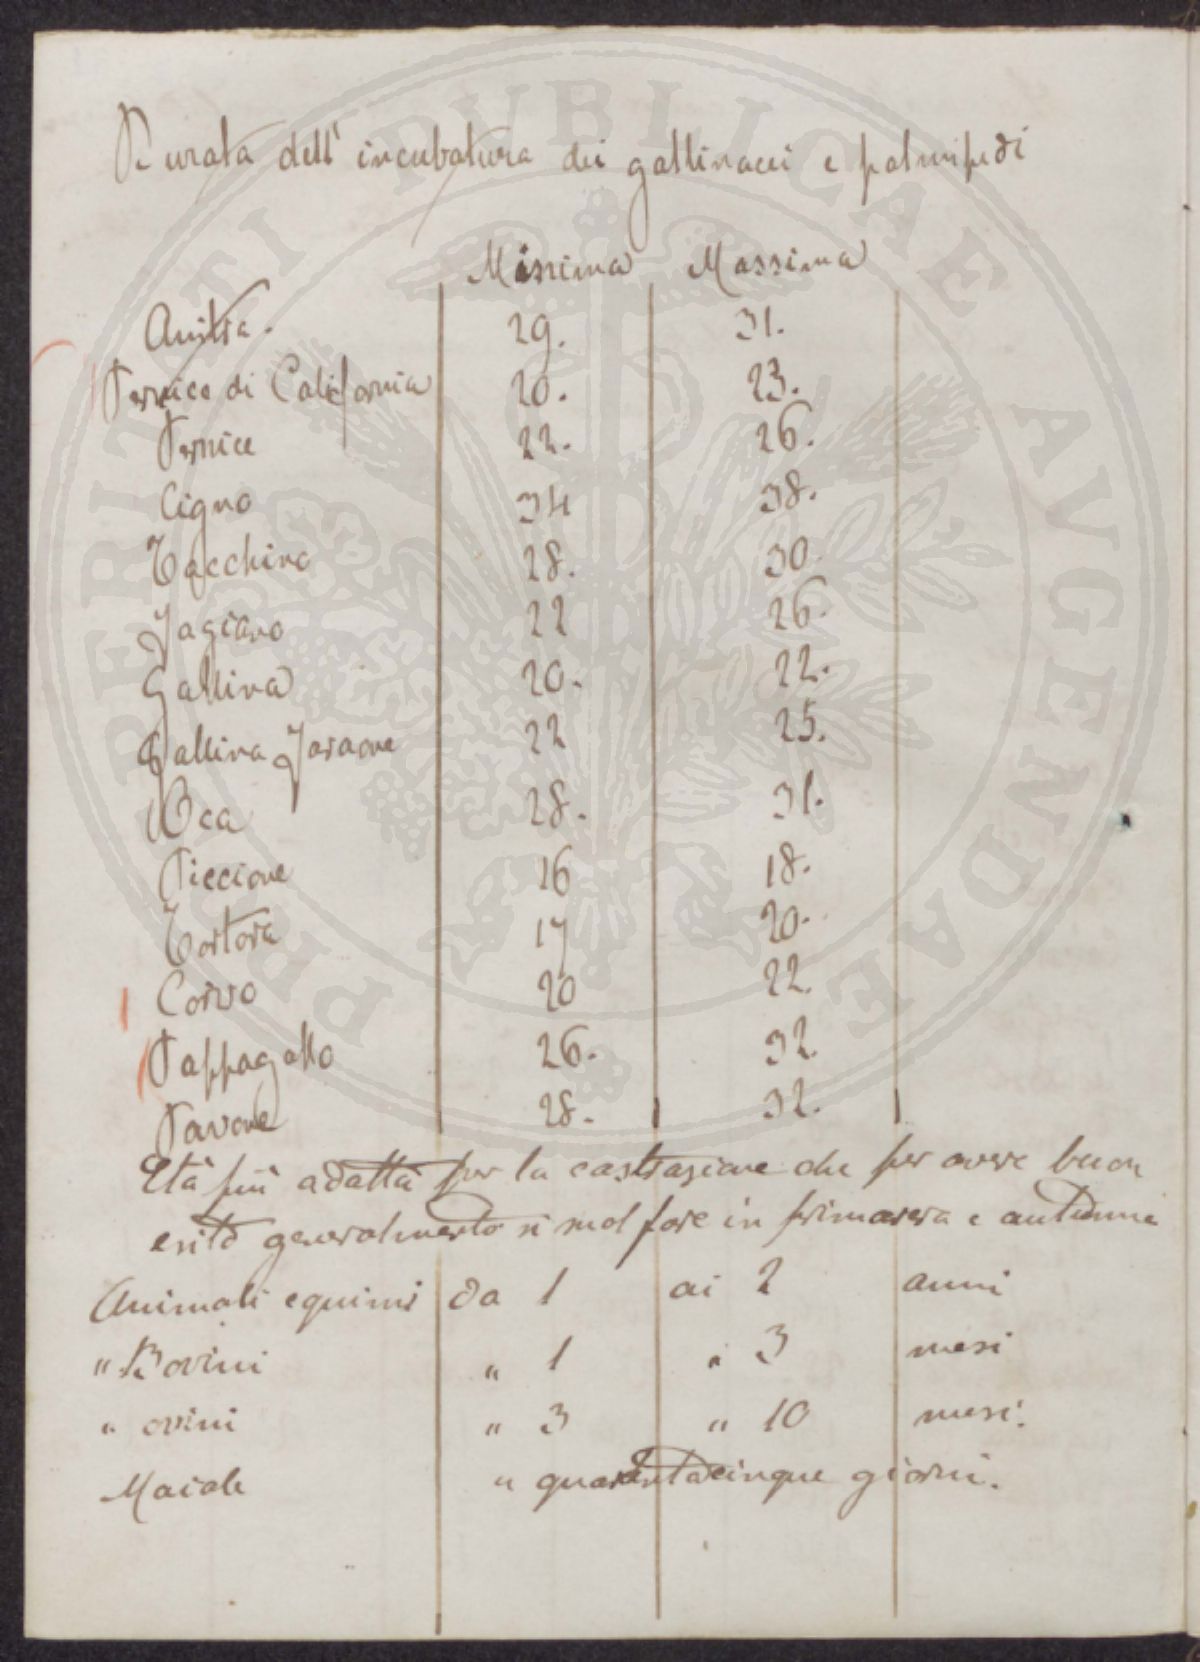 Durata dell'incubatura dei gallinacei e palmipedi
Minima Massima
Anitra. 29. 31.
Pernice di California 20. 23.
Pernice 22. 26.
Cigno 34 38.
Tacchino 28. 30.
Fagiano 22 26.
Gallina 20. 22.
Gallina Faraone 22 25.
Oca 28. 31.
Piccione 16 18.
Tortora 17 20.
Corvo 20 22.
Pappagallo 26. 32.
Pavone 28. 32.
Età più adatta per la castrazione che per avere buon
esito generalmente si suol fare in primavera e autunno
Animali equini da 1 ai 2 anni
" Bovini " 1 " 3 mesi
" ovini " 3 " 10 mesi.
Maiale " quarantacinque giorni.
PROSPERITATI PVBLICAE AVGENDAE